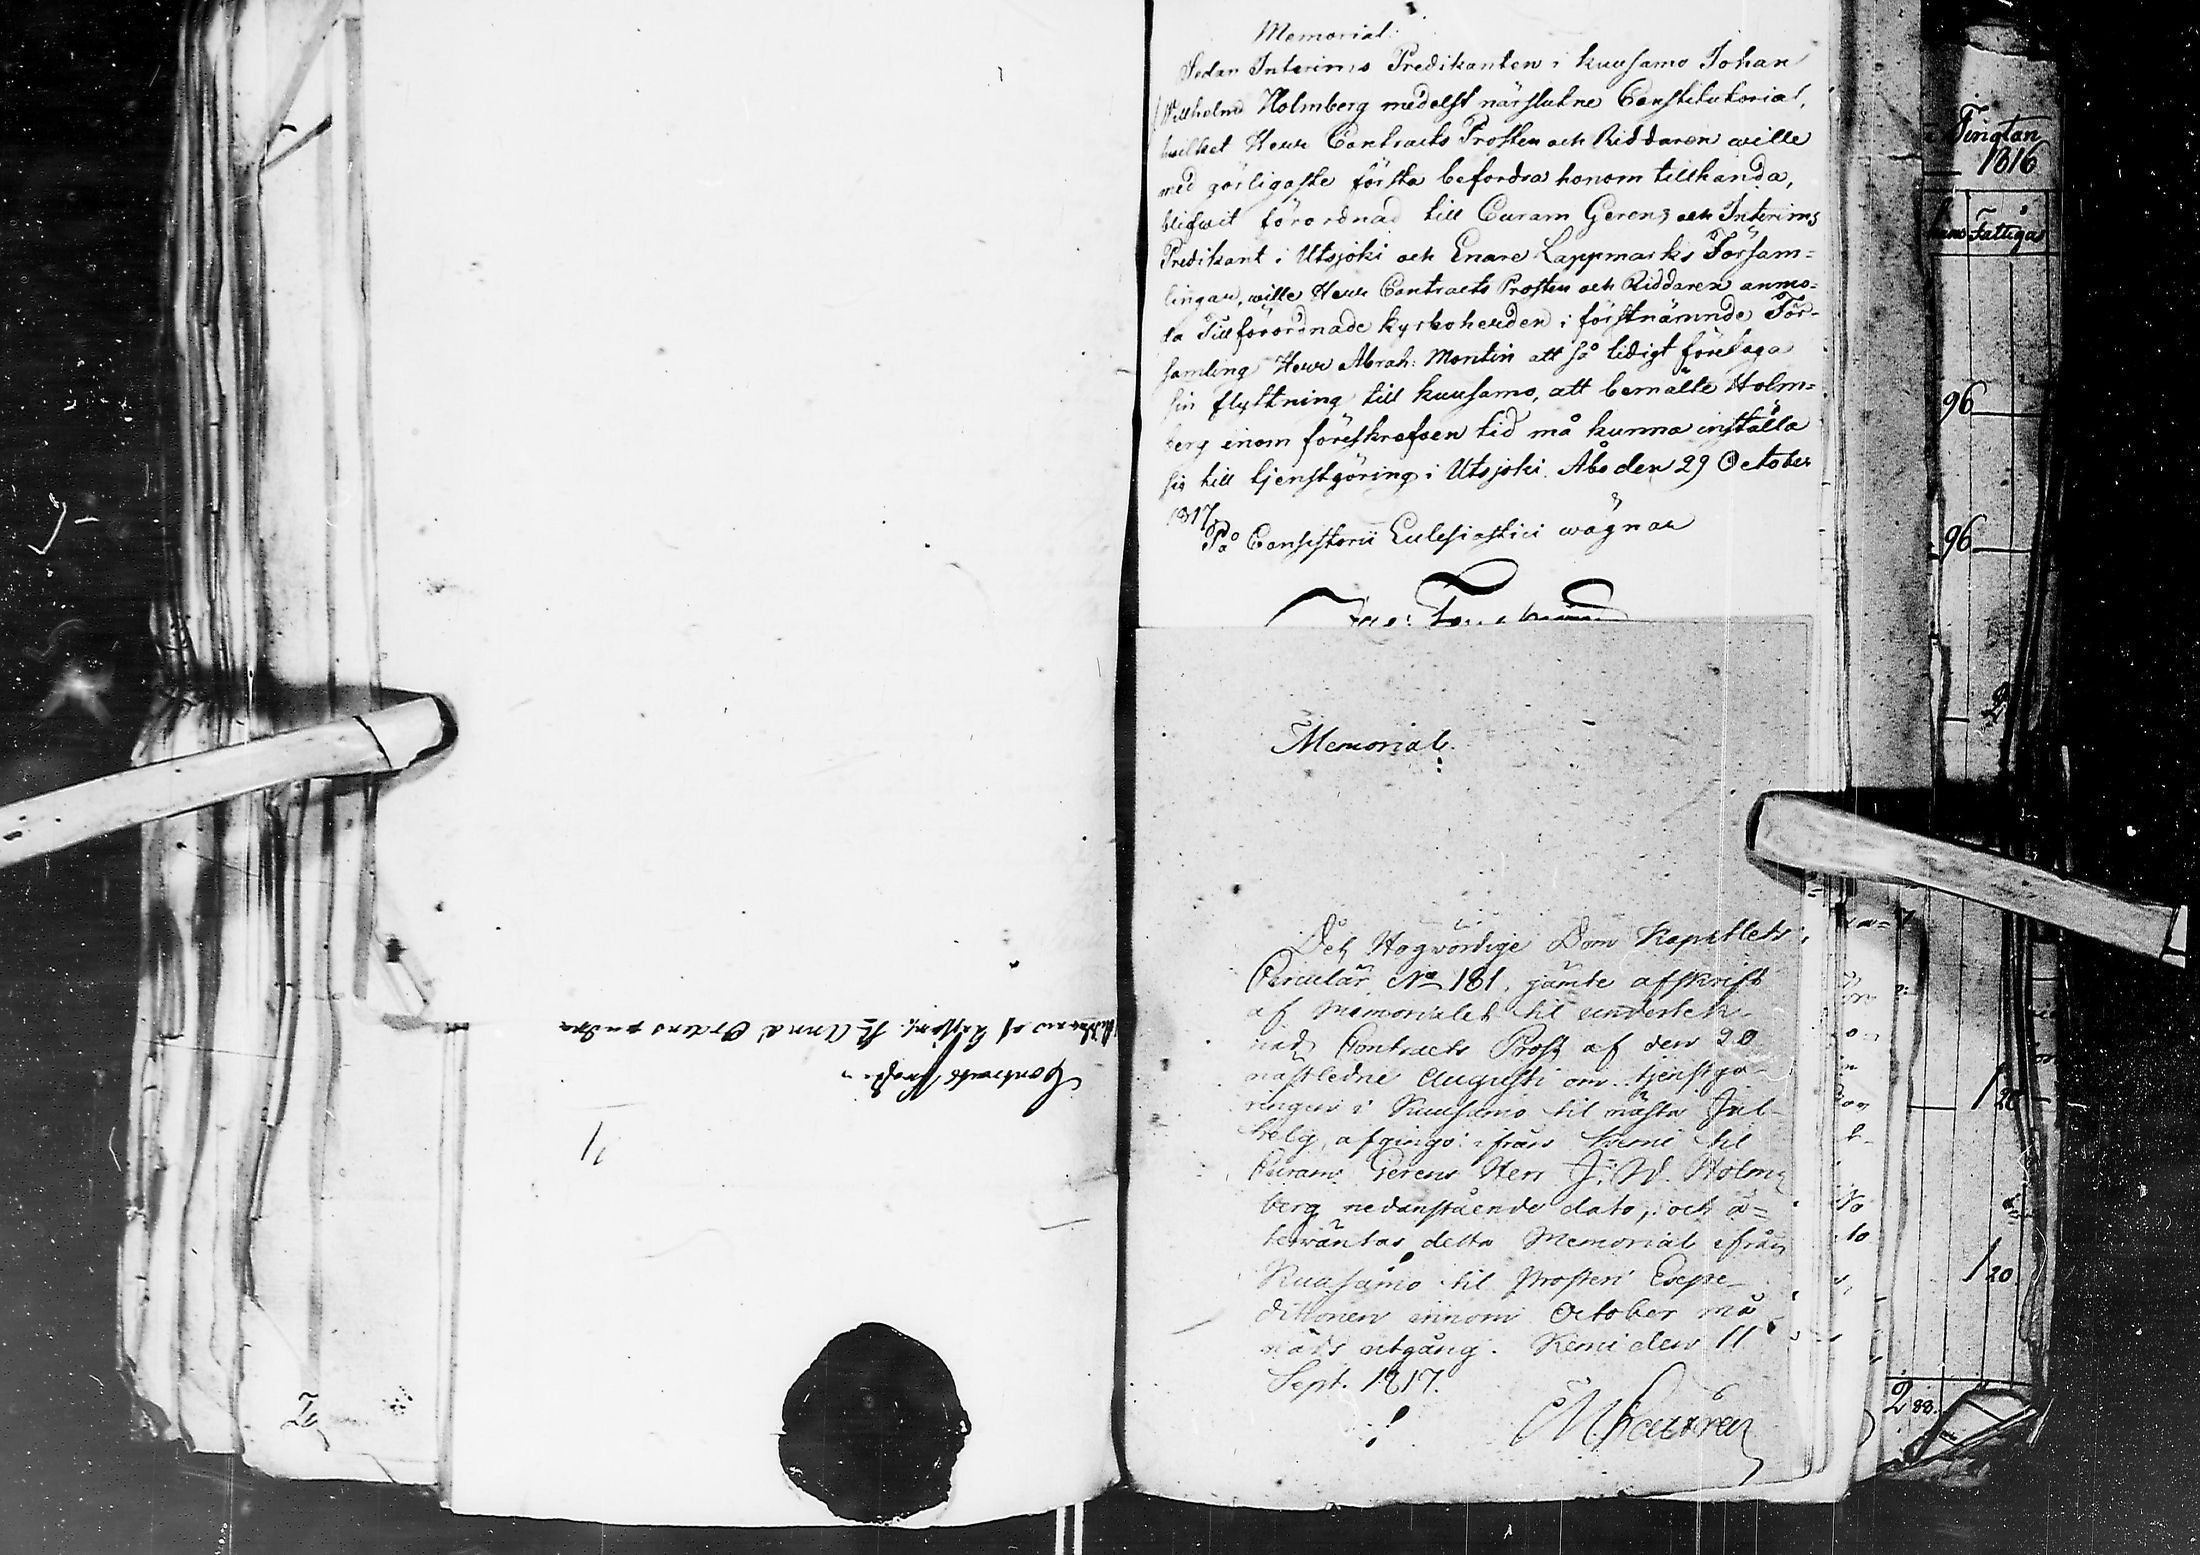 Memorial.
Sedan Interims Predikanten i Kuusamo Johan
Willhelm Holmberg medelst närslutne Constitutorial,
hvilket Herr Contracts Prosten och Riddaren wille
med görligaste första befordra honom tillhanda,
blifwit förordnad till Curam Gerens och Interims
Predikant i Utsjoki och Enare Lappmarks Försam=
lingar, wille Herr Contracts Prosten och Riddaren anmo=
da Tillförordnade kyrkoherden i förstnämnde För-
samling Herr Abrah: Montin att så tidigt företaga
sin flyttning till Kuusamo, att bemälte Holm=
berg inom föreskrefwen tid må kunna inställa
sig till tjenstgöring i Utsjoki. Åbo den 29 October
1817.
På Consistorii Eclesiastici wägnar
Memorial.
Det Högwördige Dom Kapitlets
Circulär No 181, jämte afskrift
af Memorialet til underteck-
nad Contracts Prost af den 20
nästledne Augusti om tjenstgö-
ringen i Kuusamo til nästa Jul-
helg, afgingo ifrån Kemi til
Curam Gerens Herr J. W. Holm-
berg nedanstående dato, och å=
terwäntas detta Memorial ifrån
Kuusamo til Prosteri Expe-
ditionen innom October må-
nads utgång. Kemi den 11
Sept. 1817.
Contracts Prosten
Riddaren af Kejserl. St Anna Ordens andra
Tingtan
1816
Fattiga
96
96
1 20
1 20
2 88.